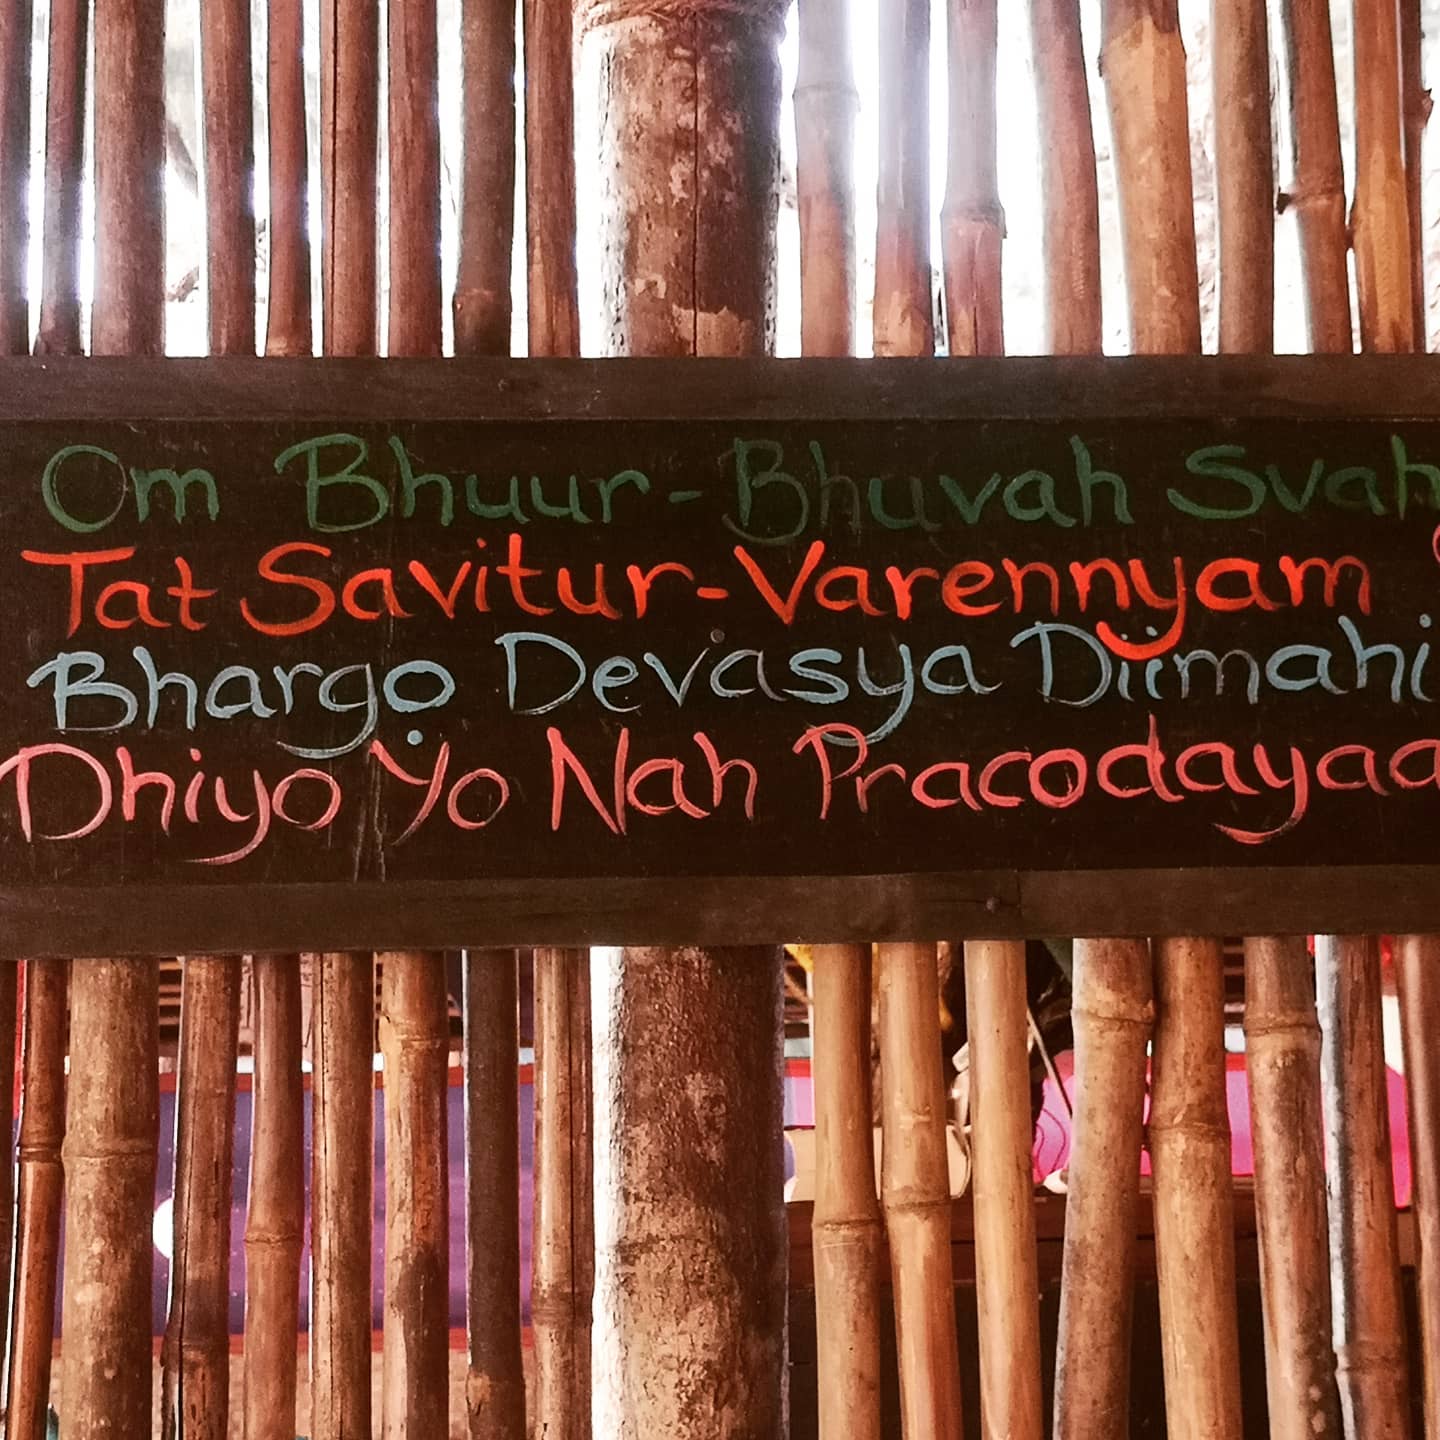 Om Bhuur-Bhuvah Svah
Tat Savitur-Varennyam
Bhargo Devasya Diimahi
Dhiyo Yo Nah Pracodayaa